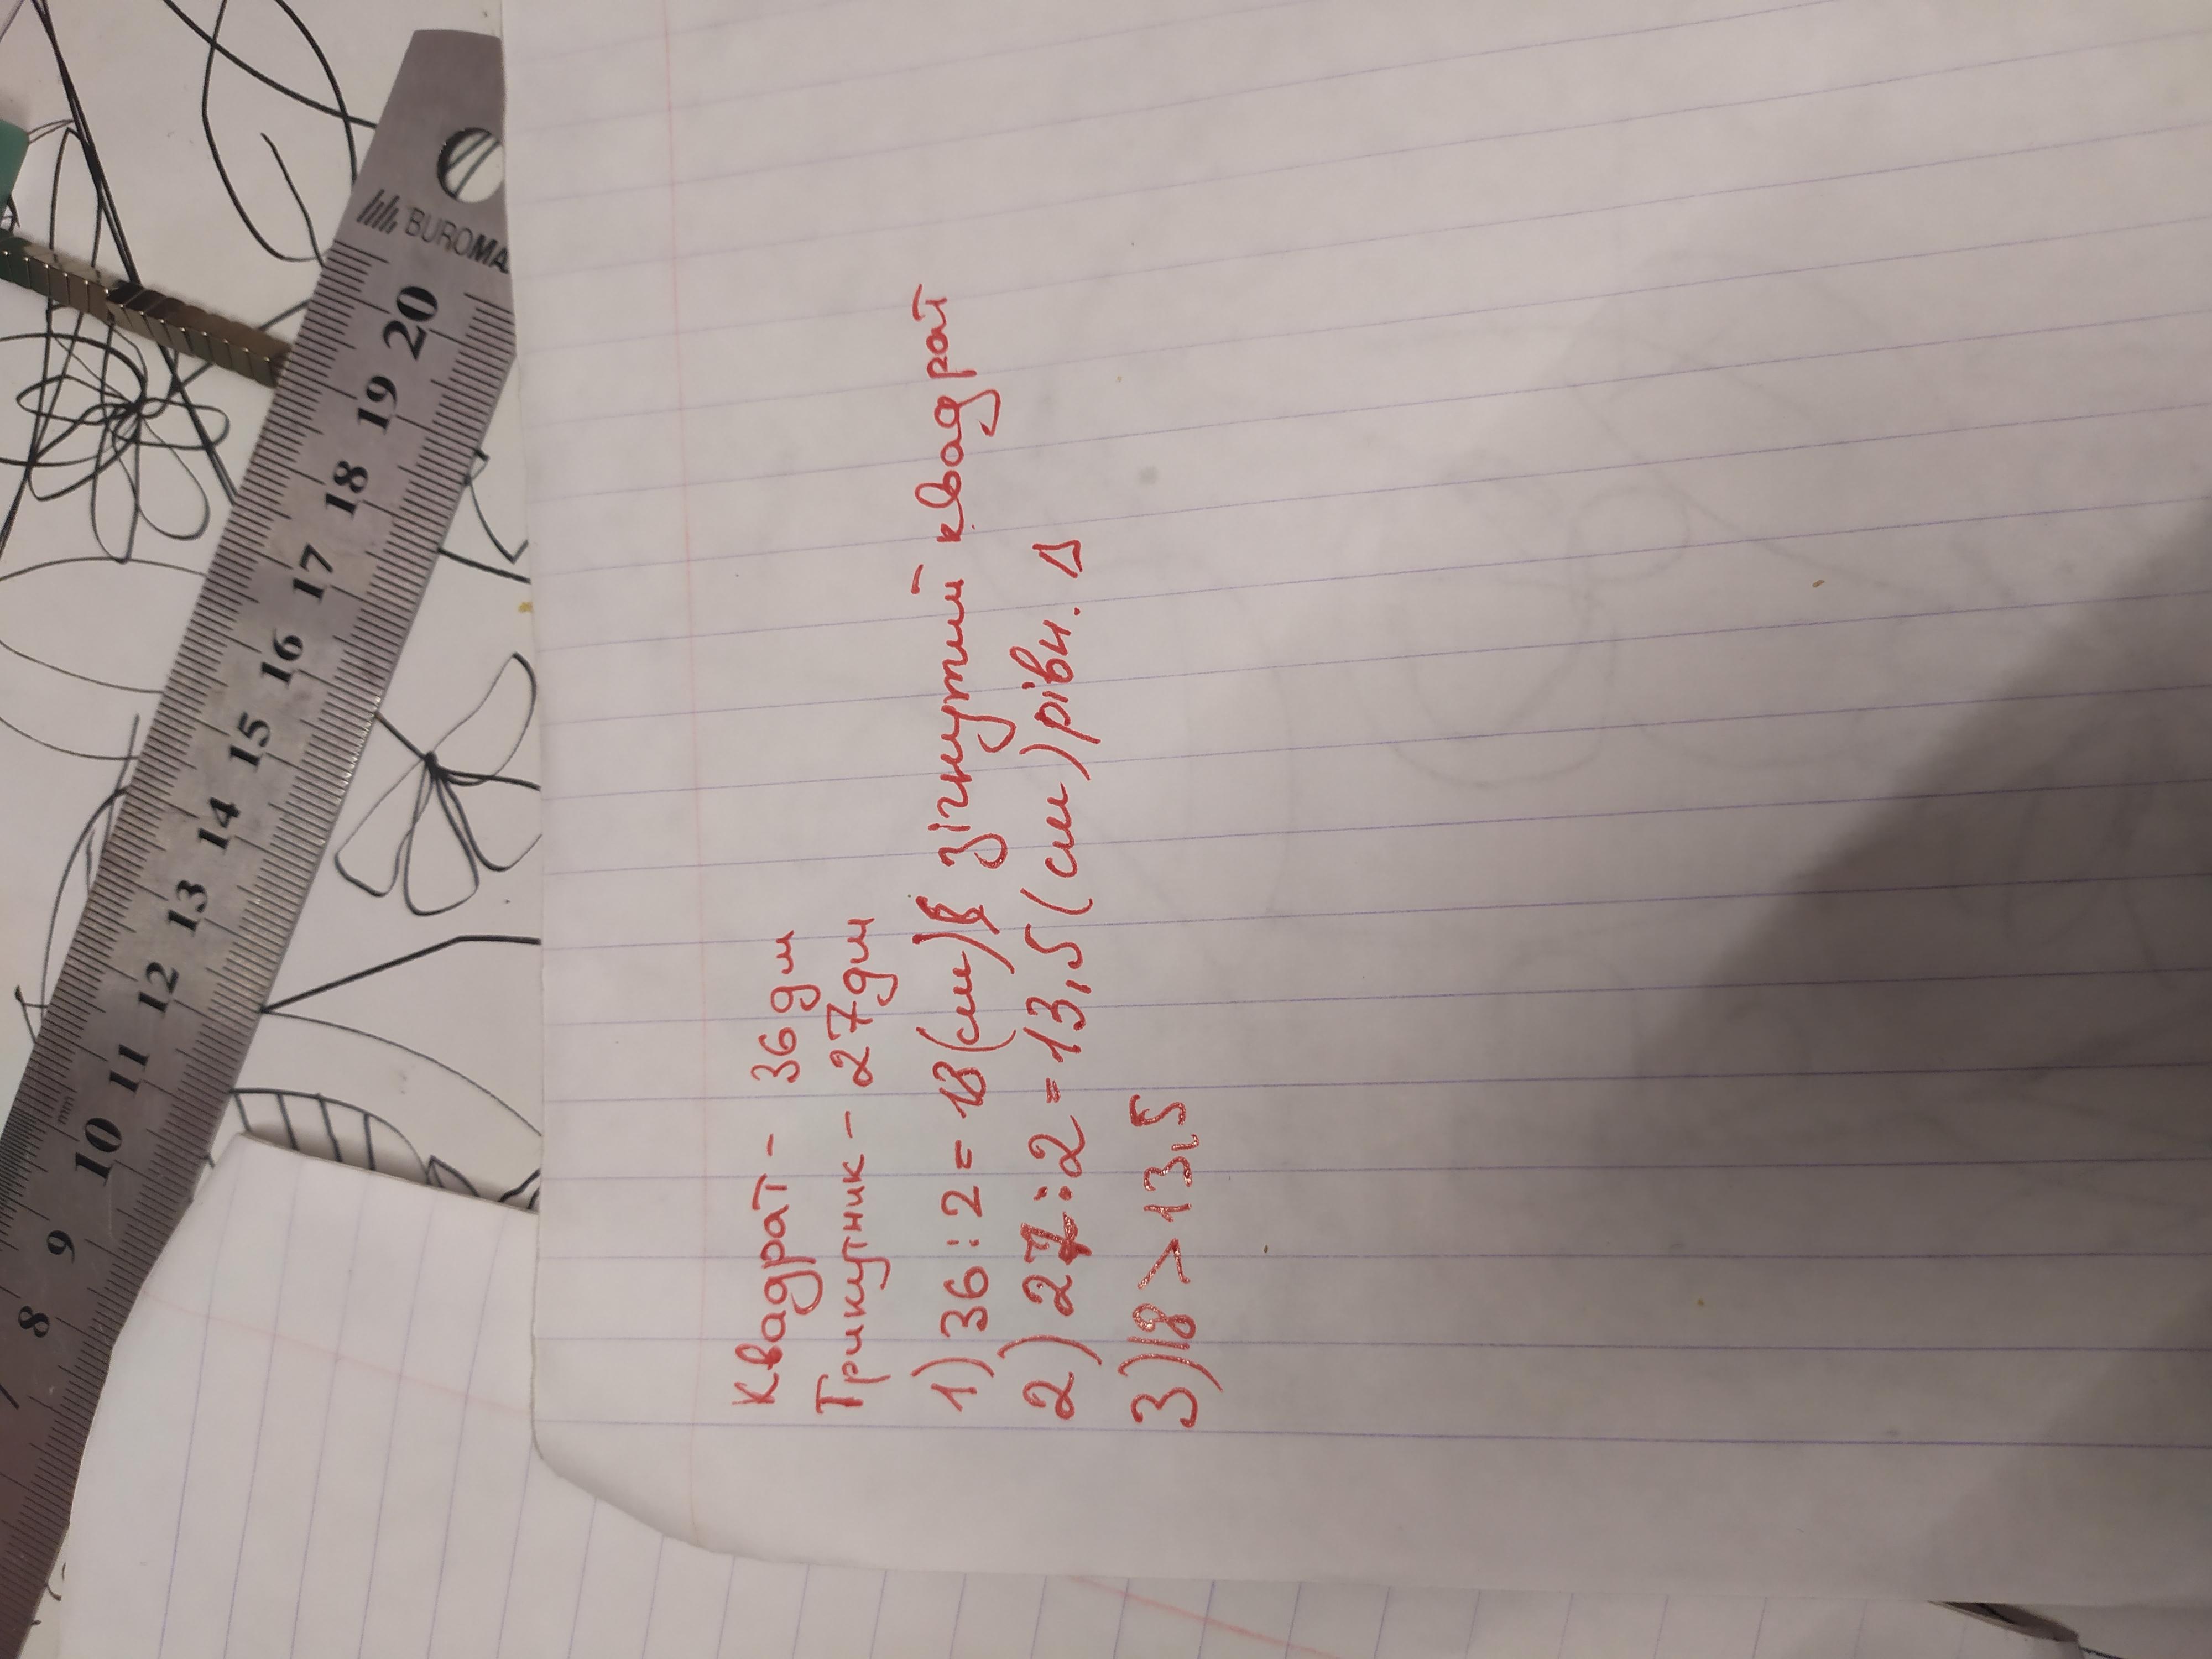 Квадрат - 36дм
Трикутник - 27дм
1) 36 : 2 = 18 (см) зігнутий квадрат
2) 27 : 2 = 13,5 (см) рівн. Δ
3) 18 > 13,5
BUROMA
20 19 18 17 16 15 14 13 12 11 10 9 8 7
mm